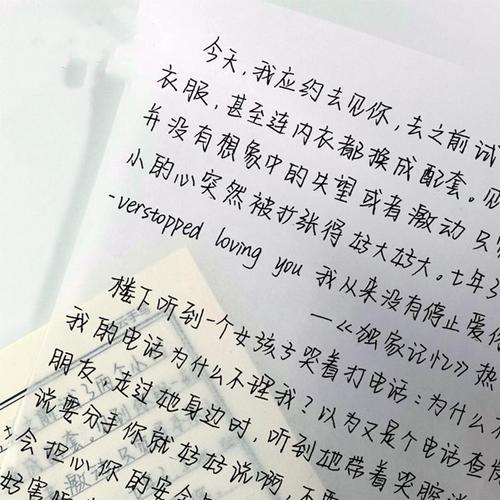 今天,我应约去见你,去之前试
衣服,甚至连内衣都换成配套。见
并没有想象中的失望或者激动 只
小的心突然被扩张得好大好大。七年
-verstopped loving you 我从来没有停止爱你
—《独家记忆》热
楼下听到一个女孩子哭着打电话:为什么
我的电话为什么不理我?以为又是个电话查
朋友 走过她身边时,听到她带着哭腔
说要分手你就好好说啊 不要
会担心你的安全
好害怕